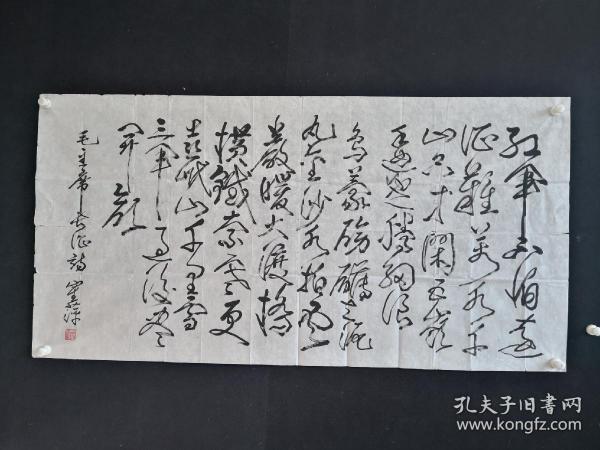 红军不怕远
征難万水千
山只等闲五岭
逶迤腾细浪
乌蒙磅礴走泥
丸金沙水拍云
崖暖大渡橋
横鐵索寒更
喜岷山千里雪
三军过后尽
开颜
毛主席长征詩
孔夫子旧书网
www.kongfz.com